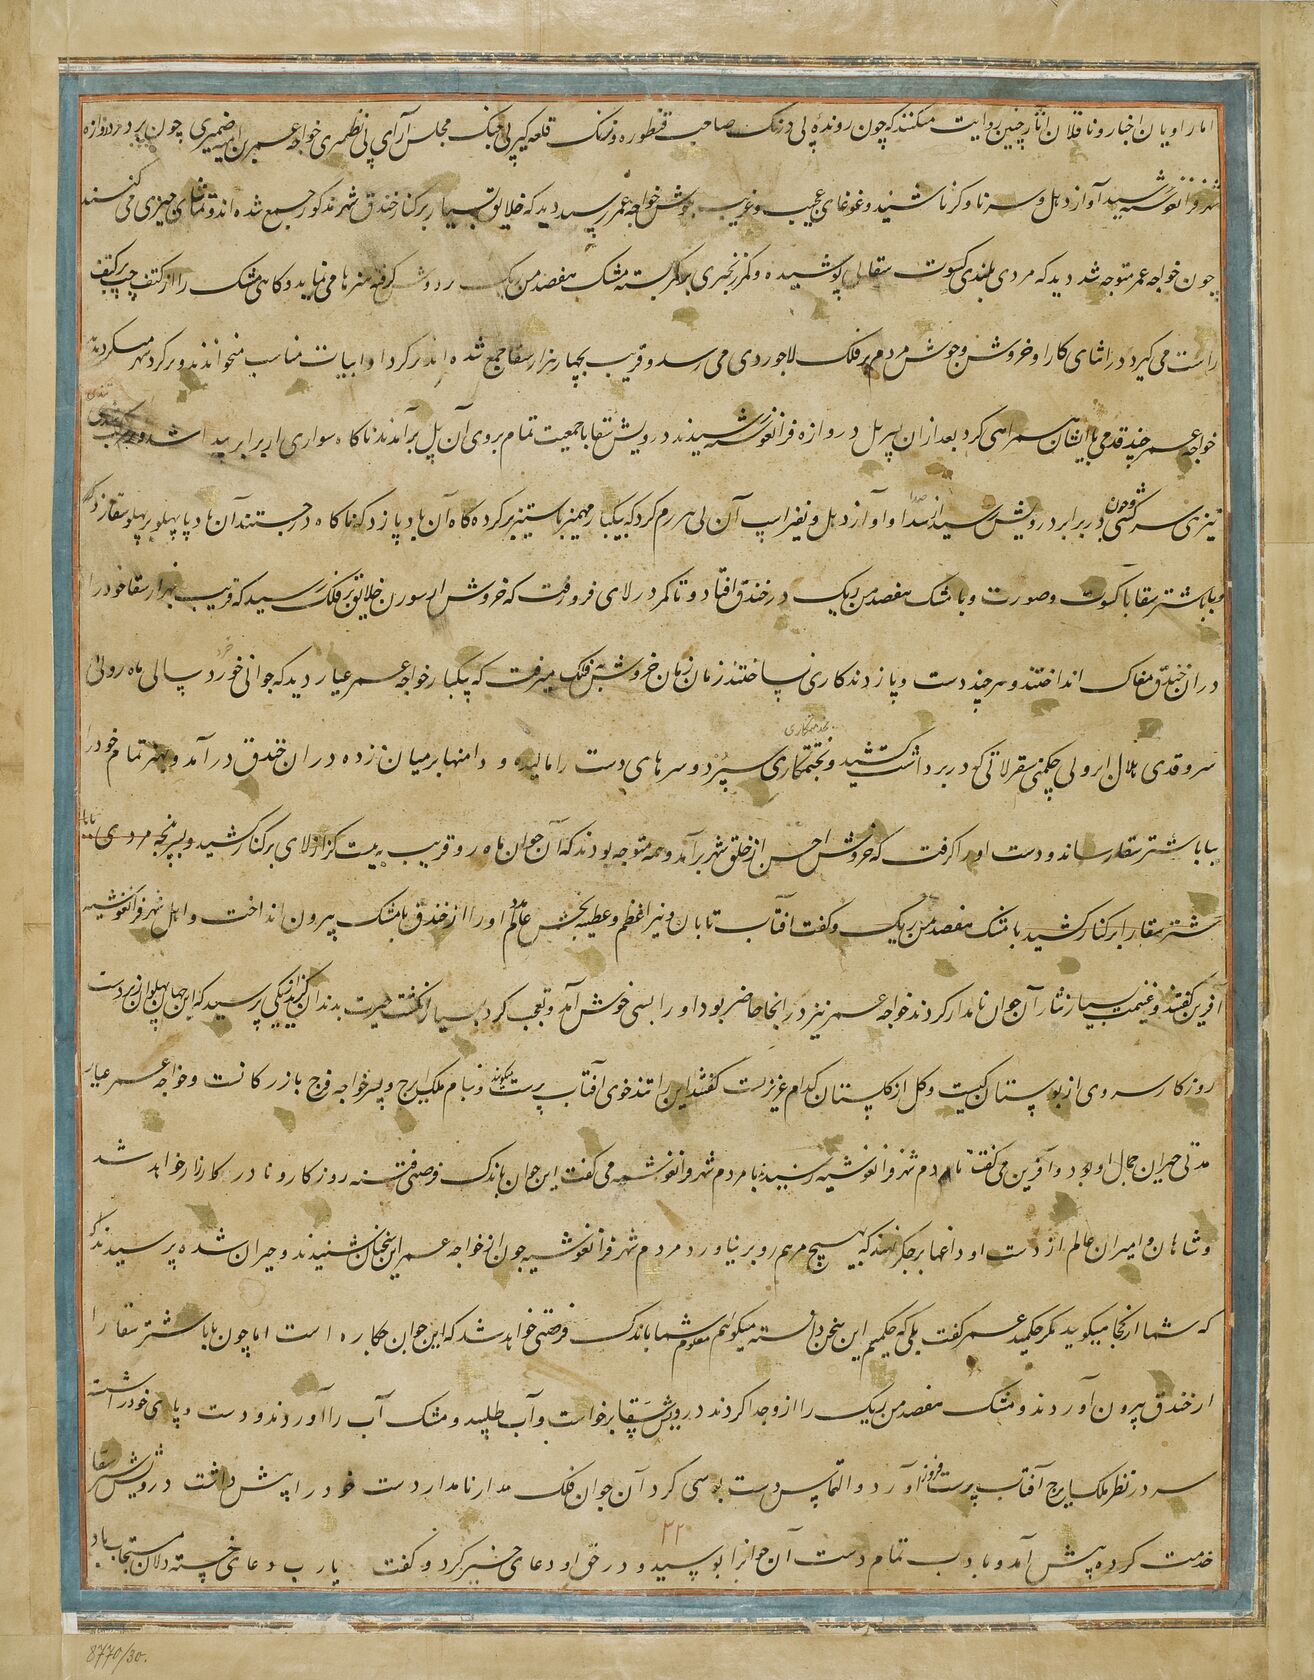 اما راویان اخبار و ناقلان آثار چنین روایت میکنند که چون رونده پی درنک صاحب قنطوره و زنک قلعه کیر بی جنک مجلس آرای بی نظیری خواجه عمر بن امیه ضمیری چون بر در دروازه
شهر فرانغوشیه رسید آواز دهل و سرنا و کرنا شنید و غوغای عجیب و غریب بکوش خواجه عمر رسید دید که خلایق بسیار بر کنار خندق شهر مذکور جمع شده اند و تماشای چیزی می کنند
چون خواجه عمر متوجه شد دید که مردی بلندی کسوت سقایان پوشیده و کمر زنجیری بر کمر بسته مشک هفصد من ریک بر دوش کرفته هنرها می نماید و کاهی مشک را از کتف چپ بر کتف
راست می کیرد در اثنای کار او خروش و جوش مردم بر فلک لاجوردی می رسد و قریب بچهار هزار سقا جمع شده اند بر کرد او ابیات مناسب میخوانند و بر کرد شهر میکردند
خواجه عمر چند قدمی با ایشان همراهی کرد بعد از آن بسر پل دروازه فرانغوشیه رسیدند درویش سقا با جمعیت تمام بر روی آن پل برآمدند ناکاه سواری از برابر پیدا شد و مرکب تندی
تیزی سرکشی و چون در برابر درویش رسید از صدا و آواز دهل و نفیر اسپ آن لی هر رم کرد که بیکبار مهمیز باستیز بر کرده کاه آن بادپا زد که ناکاه در جستند آن بادپا پهلو بر پهلو سقا زد که
و بابا شتر سقا با کسوت و صورت و با مشک هفصد من ریک در خندق افتاد و تا کمر در لای فرو رفت که خروش از سورن خلایق بر فلک رسید که قریب بهزار سقا خود را
در ان خندق مغاک انداختند و هر چند دست و پا زدند کاری نساختند زمان زمان خروش بر فلک میرفت که یکبار خواجه عمر عیار دید که جوانی خورد سالی ماه روئی
سرو قدی هلال ابروئی چکمنی سقرلاتی که در بر داشت کشید و بخدمتکاری سپرد و سرهای دست را مالیده و دامنها بر میان زده در ان خندق در آمد و بهنر تمام خود را
ببابا شتر سقا رساند و دست او را کرفت که خروش احسن از خلق شهر برآمد و همه متوجه بودند که آن جوان ماه رو قریب به بیست کز از لای بر کنار کشید و بسر پنجه مردی بابا
شتر سقا را بر کنار کشید با مشک هفصد من ریک و کفت افتاب تابان و نیر اعظم و عطیه بخش عالم مدد او را از خندق با مشک بیرون انداخت و اهل شهر فرانغوشیه
آفرین کفتند و غنیمت بسیار نثار آن جوان نامدار کردند خواجه عمر نیز در انجا حاضر بود او را بسی خوش آمد و تعجب کرد بسیار انکشت حیرت بدندان کزید از یکی پرسید که این جهان پهلوان زبردست
روزکار سروی از بوستان کیست و کل از کلستان کدام عزیزست کفتند این را تندخوی آفتاب پرست میکویند و نبام ملک ایرج و پسر خواجه فرج بازرکانست و خواجه عمر عیار
مدتی حیران جمال او بود و آفرین می کفت تا مردم شهر فرانغوشیه رسیدند با مردم شهر فرانغوشیه می کفت این جوان باندک فرصتی فتنه روزکار و نادر کارزار خواهد شد
و شاهان و امیران عالم از دست او داغها بر جکر نهند که بهیچ مرهم رو بر نیاورد مردم شهر فرانغوشیه چون از خواجه عمر این سخنان شنیدند و حیران شده پرسیدند
که شما از کجا میکوید مکر حکیمید عمر کفت بلی که حکیمم این سخن دانسته میکویم معلوم شما باندک فرصتی خواهد شد که این جوان چکاره است اما چون بابا شتر سقا را
از خندق بیرون آوردند و مشک هفصد من ریک را از و جدا کردند درویش سقا برخواست و آب طلبید و مشک آب را آوردند و دست و پای خود را شسته
سر در نظر ملک ایرج آفتاب پرست فرود آورد و التماس دست بوسی کرد آن جوان فلک مدار نامدار دست خود را پیش داشت درویش شتر سقا
خدمت کرده پیش آمد و بادب تمام دست آن جوانرا بوسید و در حق او دعای خیر کرد و کفت یارب دعای خسته دلان مستجاب باد
۲۲
8770/30.